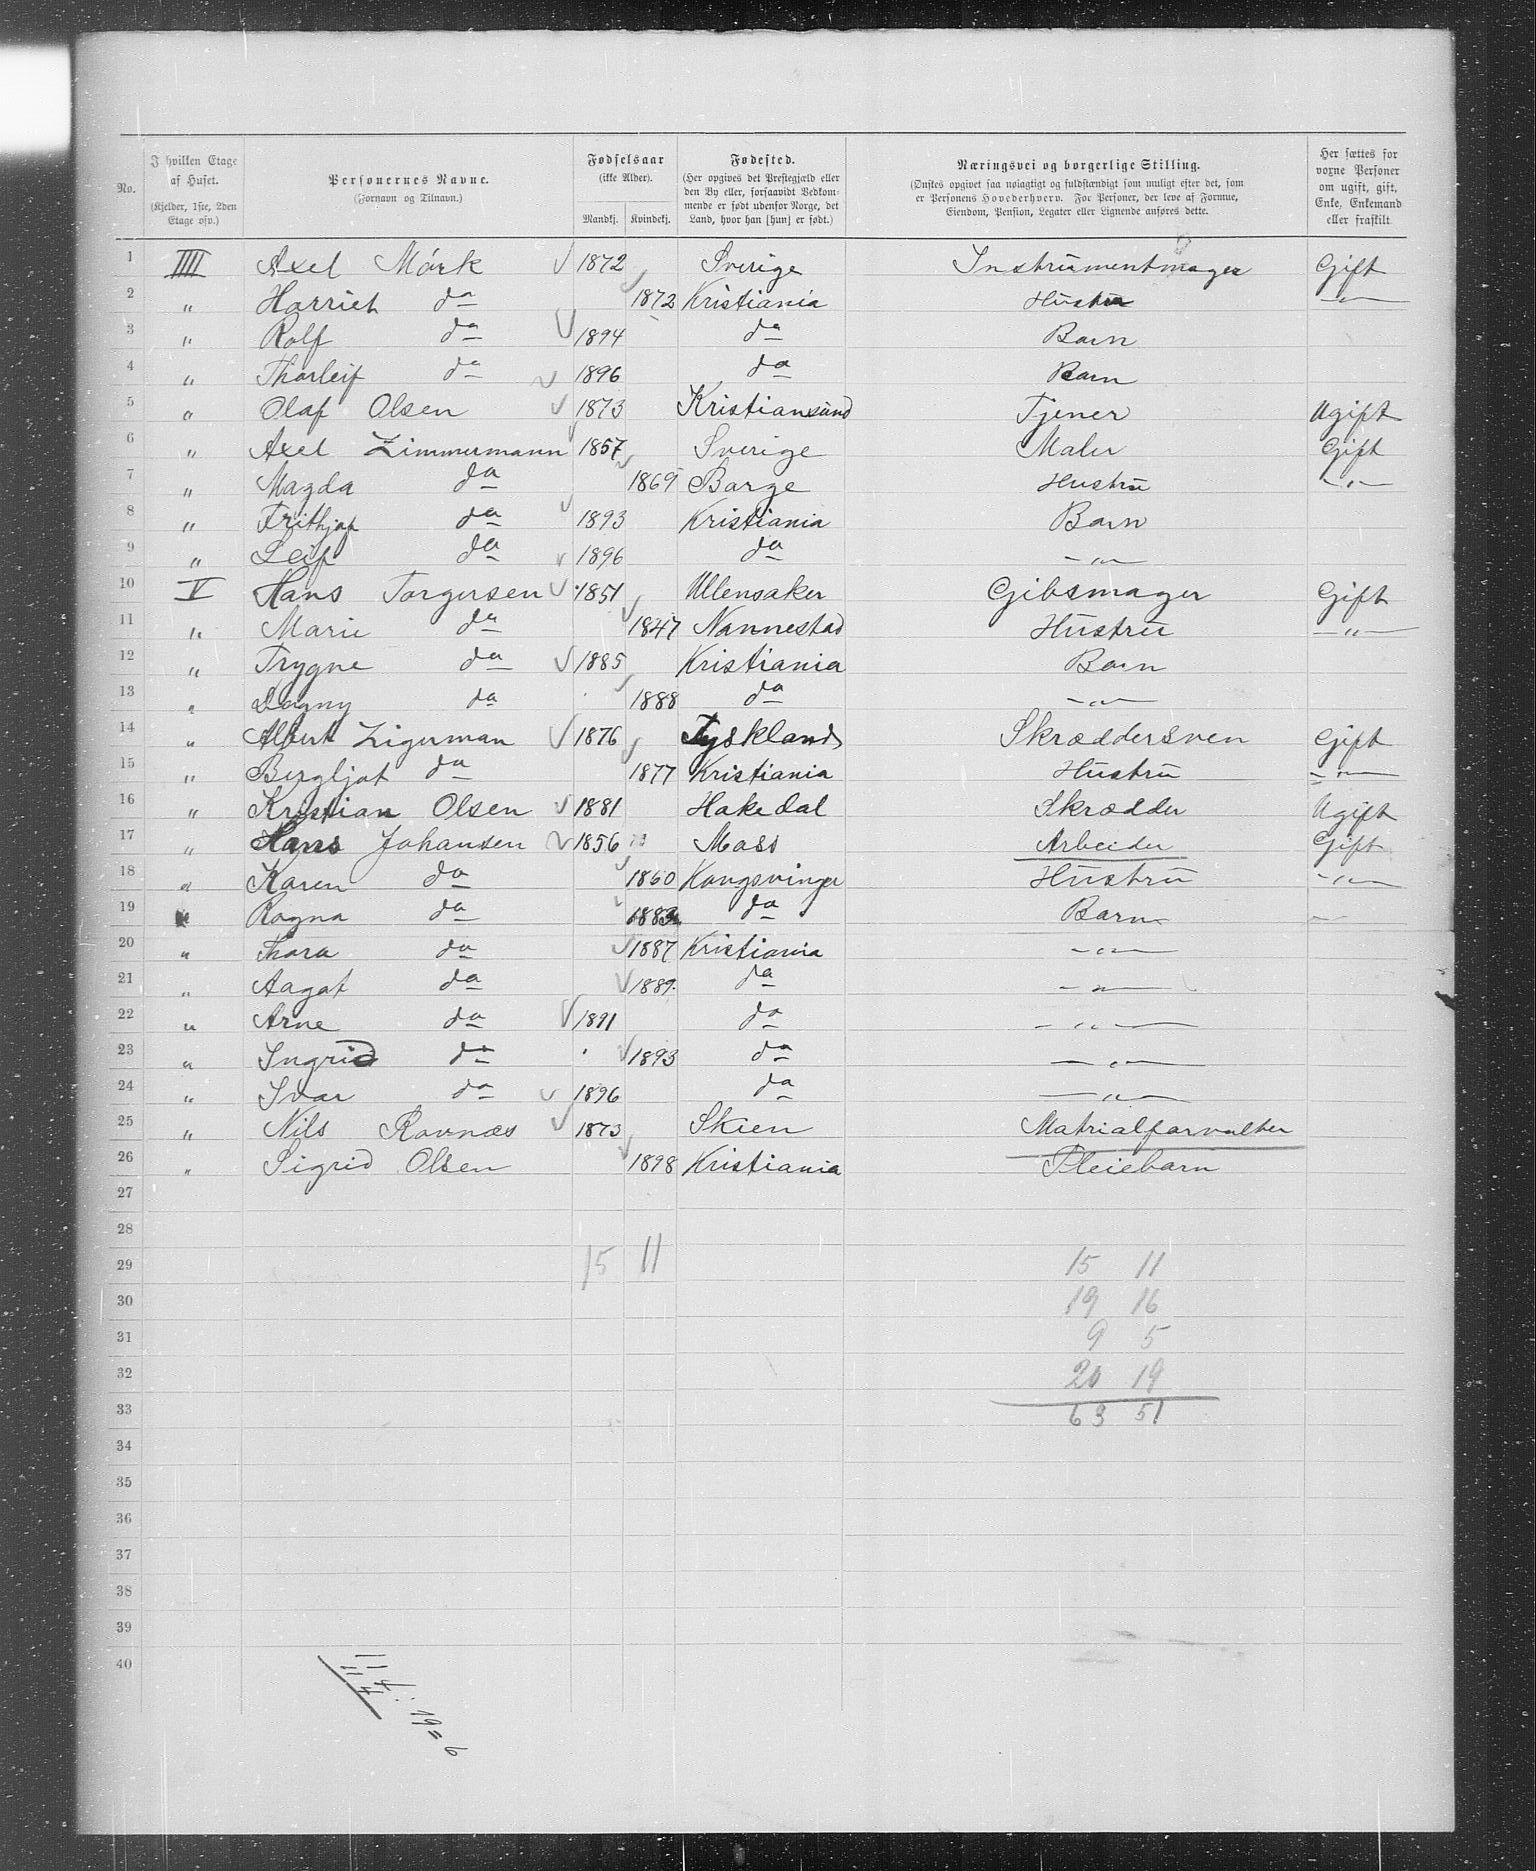 No.
I hvilken Etage af Huset. (Kjelder, 1ste, 2den Etage osv.)
Personernes Navne. (Fornavn og Tilnavn.)
Fødselsaar (ikke Alder). Mandkj. Kvindekj.
Fødested. (Her opgives det Prestegjæld eller den By eller, forsaavidt Vedkommende er født udenfor Norge, det Land, hvor han [hun] er født.)
Næringsvei og borgerlige Stilling. (Ønskes opgivet saa nøiagtigt og fuldstændigt som muligt efter det, som er Personens Hovederhverv. For Personer, der leve af Formue, Eiendom, Pension, Legater eller Lignende anføres dette.
Her sættes for voxne Personer om ugift, gift, Enke, Enkemand eller fraskilt
1 IIII Axel Mörk 1872 Sverige Instrumentmager Gift
2 " Harriet do 1872 Kristiania Hustru — " —
3 " Rolf do 1894 do Barn
4 " Thorleif do 1896 do Barn
5 " Olaf Olsen 1873 Kristiansund Tjener Ugift
6 " Axel Zimmermann 1857 Sverige Maler Gift
7 " Magda do 1869 Borge Hustru — " —
8 " Frithjof do 1893 Kristiania Barn
9 " Leif do 1896 do — " —
10 V Hans Torgersen 1851 Ullensaker Gibsmager Gift
11 " Marie do 1847 Nannestad Hustru — " —
12 " Trygve do 1885 Kristiania Barn
13 " Dagny do 1888 do — " —
14 " Albert Zigerman 1876 Tyskland Skræddersven Gift
15 " Bergljot do 1877 Kristiania Hustru — " —
16 " Kristian Olsen 1881 Hakedal Skrædder Ugift
17 " Hans Johansen 1856 Moss Arbeider Gift
18 " Karen do 1860 Kongsvinger Hustru — " —
19 " Ragna do 1883 do Barn —
20 " Thora do 1887 Kristiania — " —
21 " Aagot do 1889 do — " —
22 " Arne do 1891 do — " —
23 " Ingrid do 1893 do — " —
24 " Ivar do 1896 do — " —
25 " Nils Ravnæs 1873 Skien Matrialforvalter
26 " Sigrid Olsen 1898 Kristiania Pleiebarn
27
28
29 15 11 15 11
30 19 16
31 9 5
32 20 19
33 63 51
34
35
36
37
38
39
40
114 : 19 = 6
114